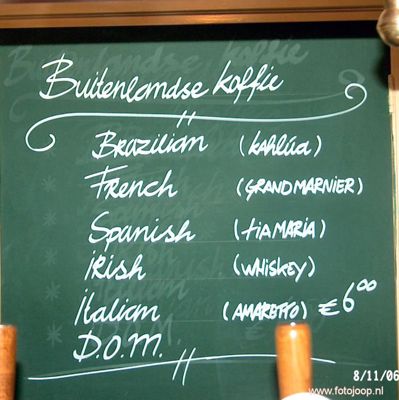 Buitenlandse koffie
Brazilian (kahlúa)
French (GRANDMARNIER)
Spanish (tia MARIA)
iRish (WHiSKEY)
italian (AMARETTO) €6.00
D.O.M.
8/11/06
www.fotojoop.nl